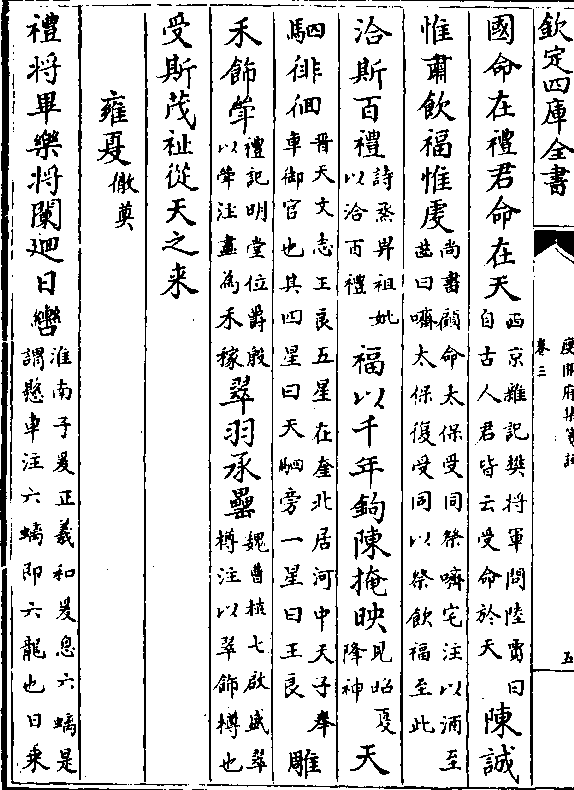 欽定四庫全書
庾開府集箋註
卷三 五
國命在禮君命在天西京雜記樊將軍問陸賈曰自古人君皆云受命於天陳誠
惟肅飲福惟虔尚書顧命太保受同祭嚌宅注以酒至齒曰嚌太保復受同以祭飲福至此
洽斯百禮詩烝畀祖妣以洽百禮福以千年鉤陳掩映見昭夏降神天
駟徘徊晉天文志王良五星在奎北居河中天子奉車御官也其四星曰天駟旁一星曰王良雕
禾飾斝禮記明堂位爵殷以斝注畫為禾稼翠羽承罍魏曹植七啟盛翠樽注以翠飾樽也
受斯茂祉從天之来
雍夏徹奠
禮將畢樂將闌廻日轡淮南子爰正羲和爰息六螭是謂懸車注六螭即六龍也日乘